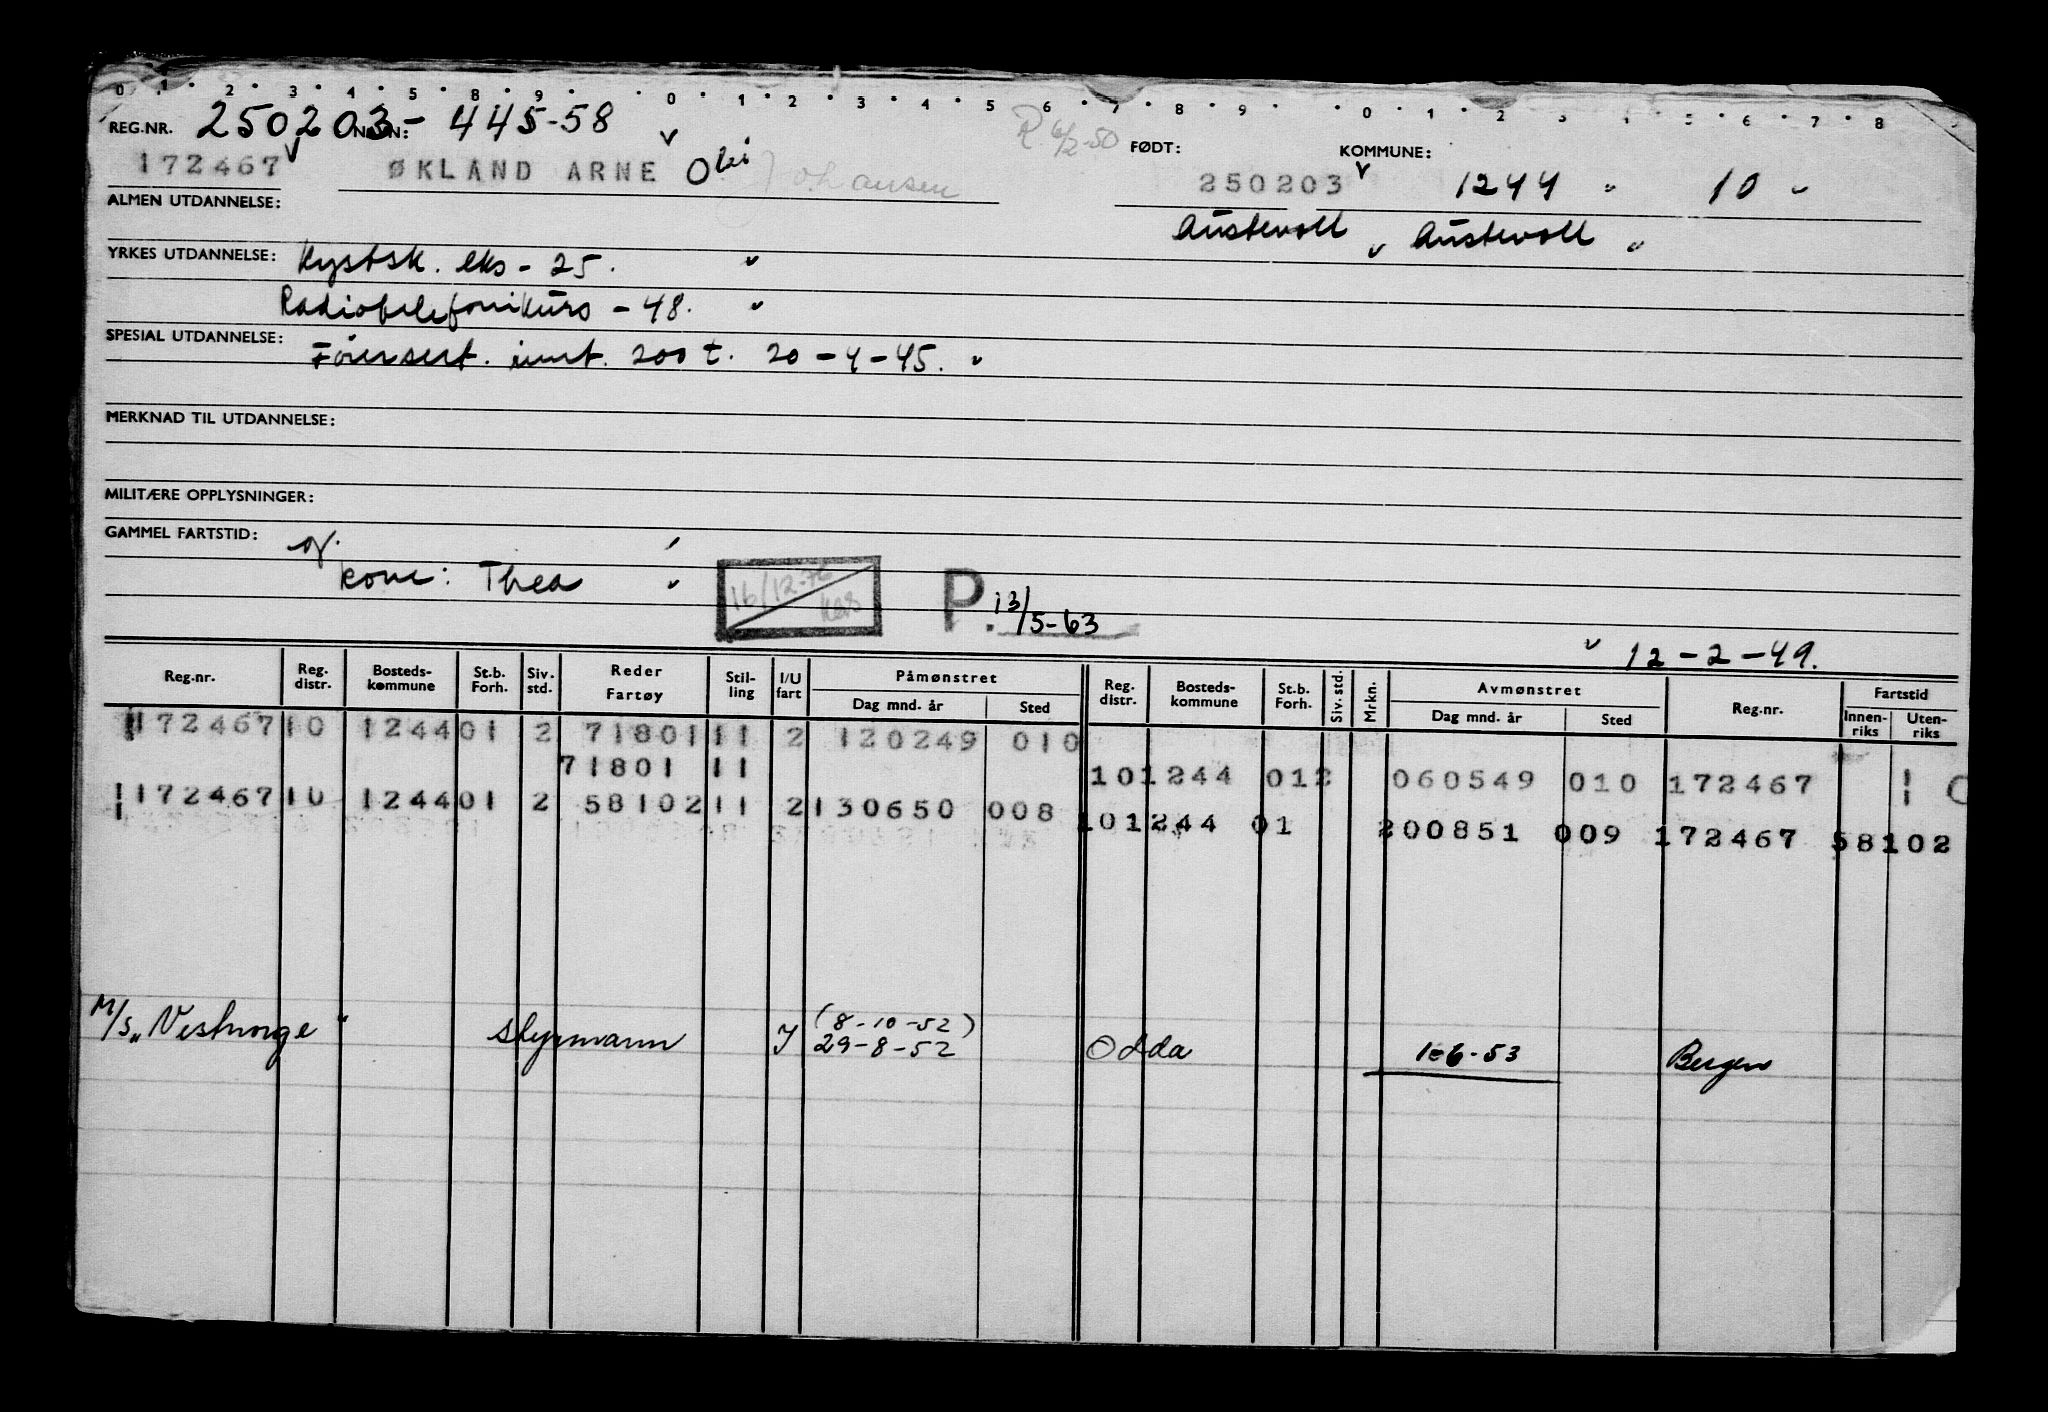 0 1 2 3 4 5 8 9 0 1 2 3 4 5 6 7 8 9 0 1 2 3 4 5 6 7 8
REG.NR. 250203- NAVN: 445-58
172467 ØKLAND ARNE Johansen R 6/2-50 FØDT: 250203 KOMMUNE: 1244 " 10 "
ALMEN UTDANNELSE: Austevoll " Austevoll "
YRKES UTDANNELSE: Kystsk. eks - 25. "
Radiotelefonikurs - 48. "
SPESIAL UTDANNELSE: Førersert. innt. 200 t. 20-4-45. "
MERKNAD TIL UTDANNELSE:
MILITÆRE OPPLYSNINGER:
GAMMEL FARTSTID: g.
kone: Thea " 16/12-76 P. 13/5-63
" 12-2-49.
Reg.nr. Reg. distr. Bosteds-kommune St.b. Forh. Siv. std. Reder Fartøy Stil-ling I/U fart Påmønstret Dag mnd. år Sted Reg. distr. Bosteds-kommune St.b. Forh. Siv. std. Mrkn. Avmønstret Dag mnd. år Sted Reg.nr. Fartstid Innen-riks Uten-riks
172467 10 1244 01 2 71801 11 2 120249 010
71801 11 10 1244 012 060549 010 172467 1 0
172467 10 1244 01 2 58102 11 2 130650 008
10 1244 01 200851 009 172467 58102
M/S "Vestnorge" styrmann I (8-10-52)
29-8-52 Odda 1-6-53 Bergen